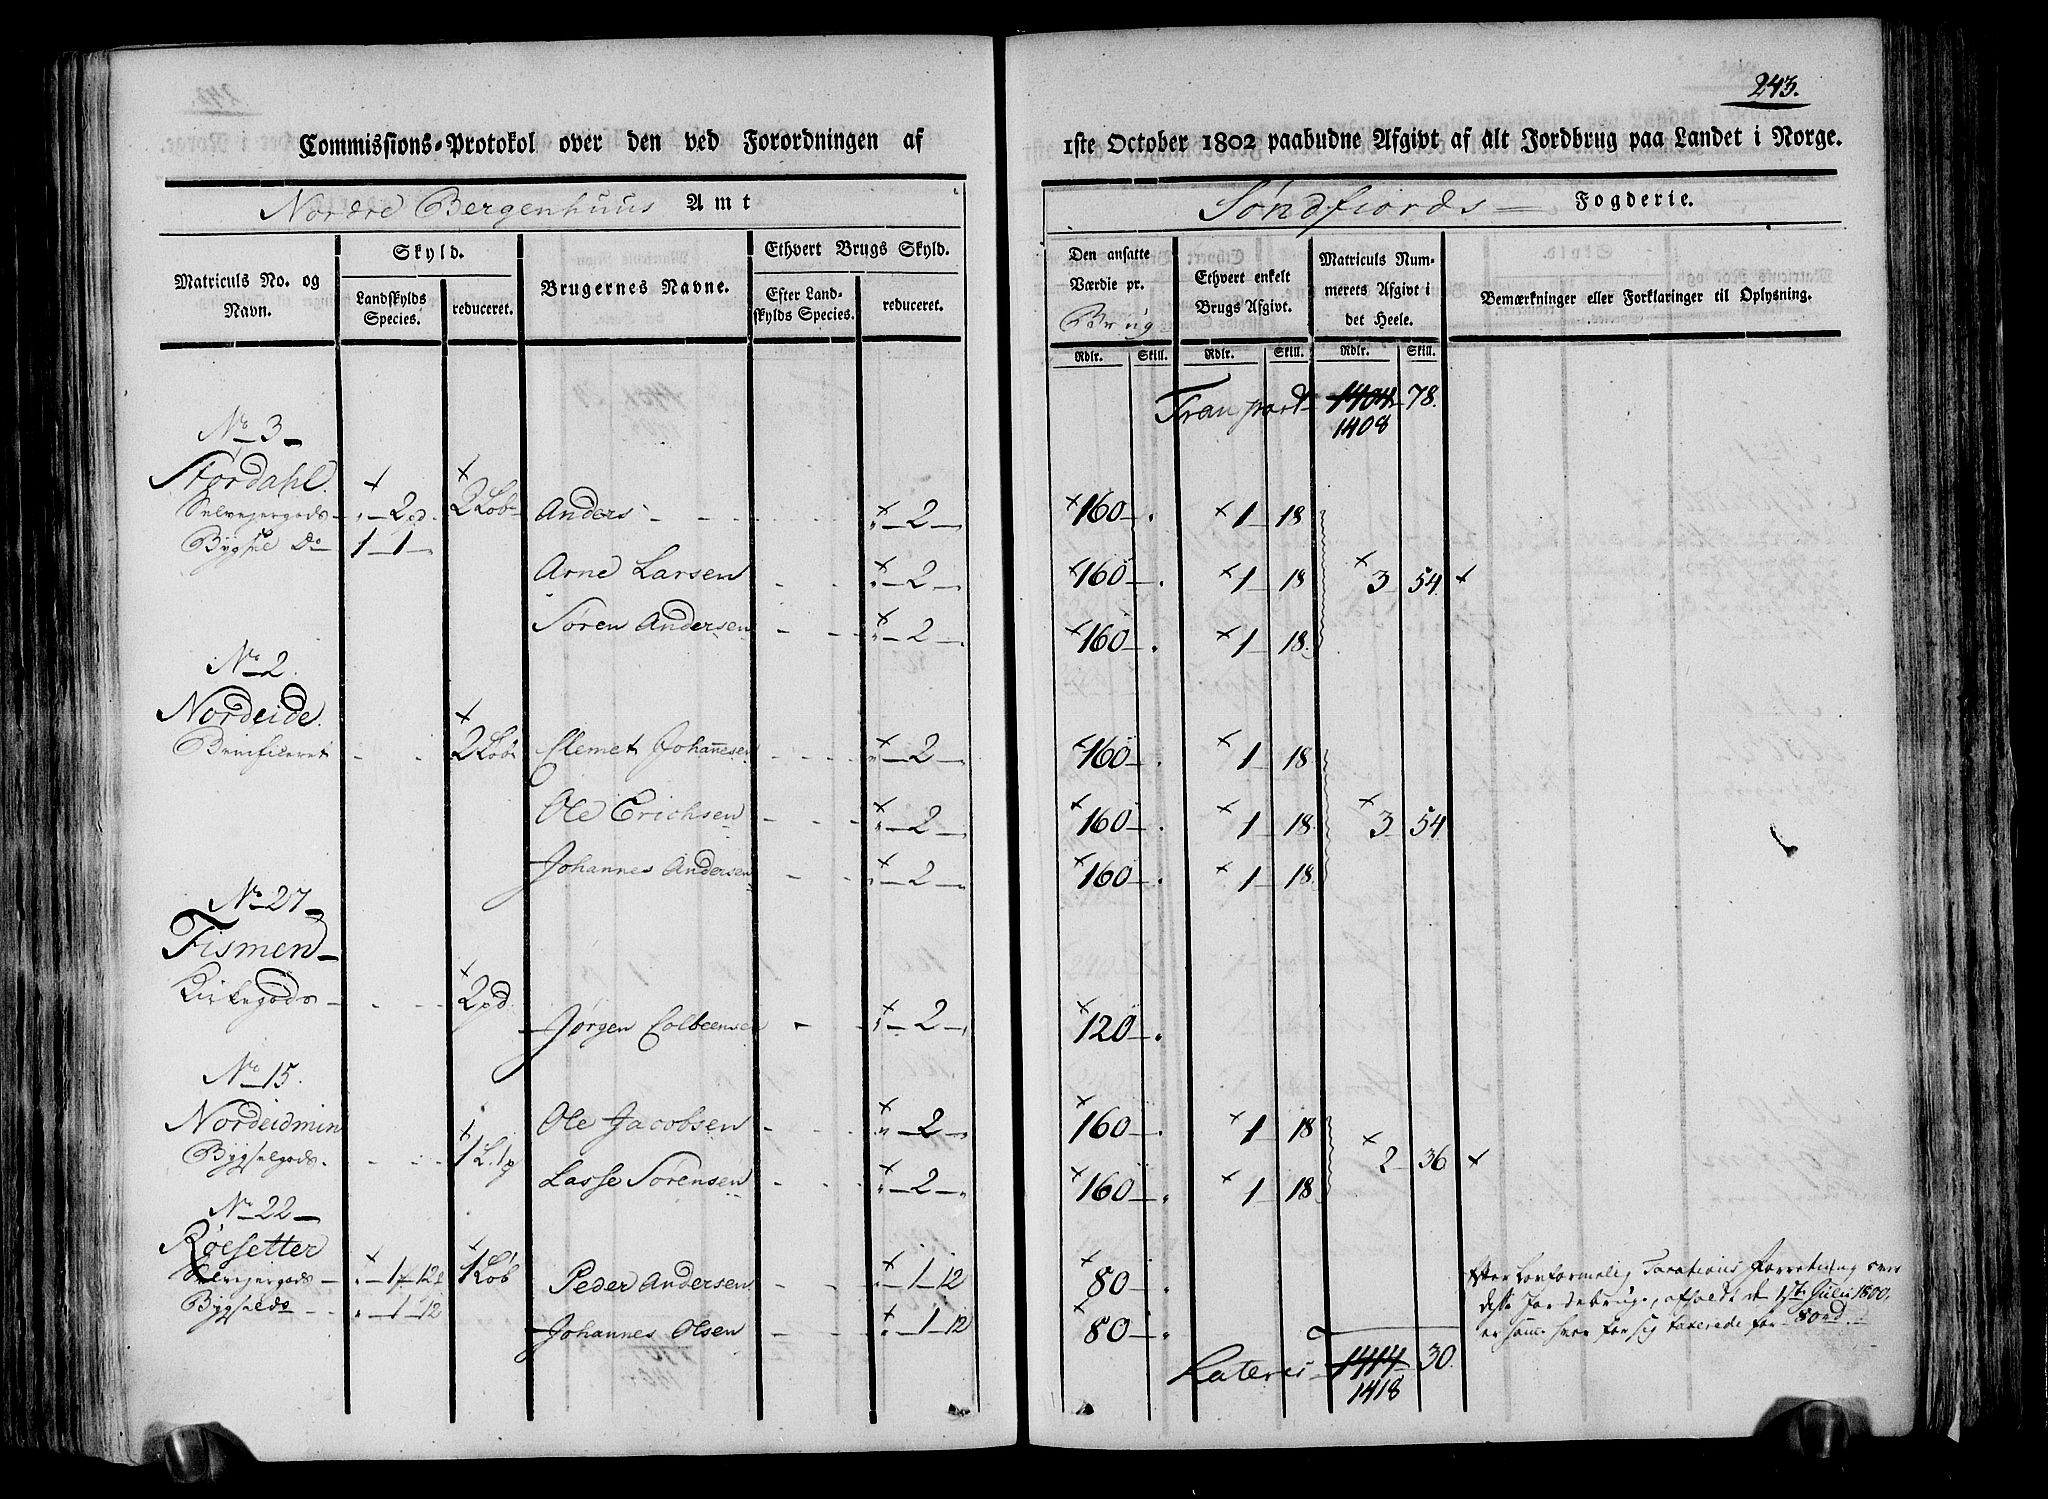 243.
Commissions-Protokol over den ved Forordningen af 1ste October 1802 paabudne Afgivt af alt Jordbrug paa Landet i Norge.
Nordre Bergenhuus Amt
Søndfiords Fogderie.
Matriculs No. og Navn.
Skyld.
Landskylds Species.
reduceret.
Brugernes Navne.
Ethvert Brugs Skyld.
Efter Landskylds Species.
reduceret.
Den ansatte Værdie pr. Brug
Ethvert enkelt Brugs Afgivt.
Matriculs Nummerets Afgivt i det Heele.
Bemærkninger eller Forklaringer til Oplysning.
Rdlr. Skill. Rdlr. Skill. Rdlr. Skill.
Transport 1404 78.
1408
No 3
Stordahl
Selvejergods " 2 pd. 2 Løb Anders " 2 160 1 18
Bygsel Do 1 1
Arne Larsen " 2 160 1 18 3 54
Søren Andersen " 2 160 1 18.
No 2.
Nordeide.
Beneficeret 2 Løb Clemet Johannesen " 2 160 1 18
Ole Erichsen " 2 160 1 18. 3 54
Johannes Andersen " 2 160 1 18.
No 27
Tismen
Kirkegods 2 pd. Jørgen Colbeensen " 2 120
No 15.
Nordeidmin Ole Jacobsen " 2 160 1 18
Bygselgods. 1 L. 1 p 2 36
Lasse Sørensen " 2 160 1 18
No 22
Røesetter
Selvejergods " 1 12 1 Løb Peder Andersen " 1 12 80
Bygseldo " 1 12 Johannes Olsen " 1 12 80
Efter lovformelig Taxations Forretning over
disse Jordebruge, afholdt d 1ste Julii 1800,
er samme hver for sig taxerede for 80 rd.
Lateris 1414 30.
1418